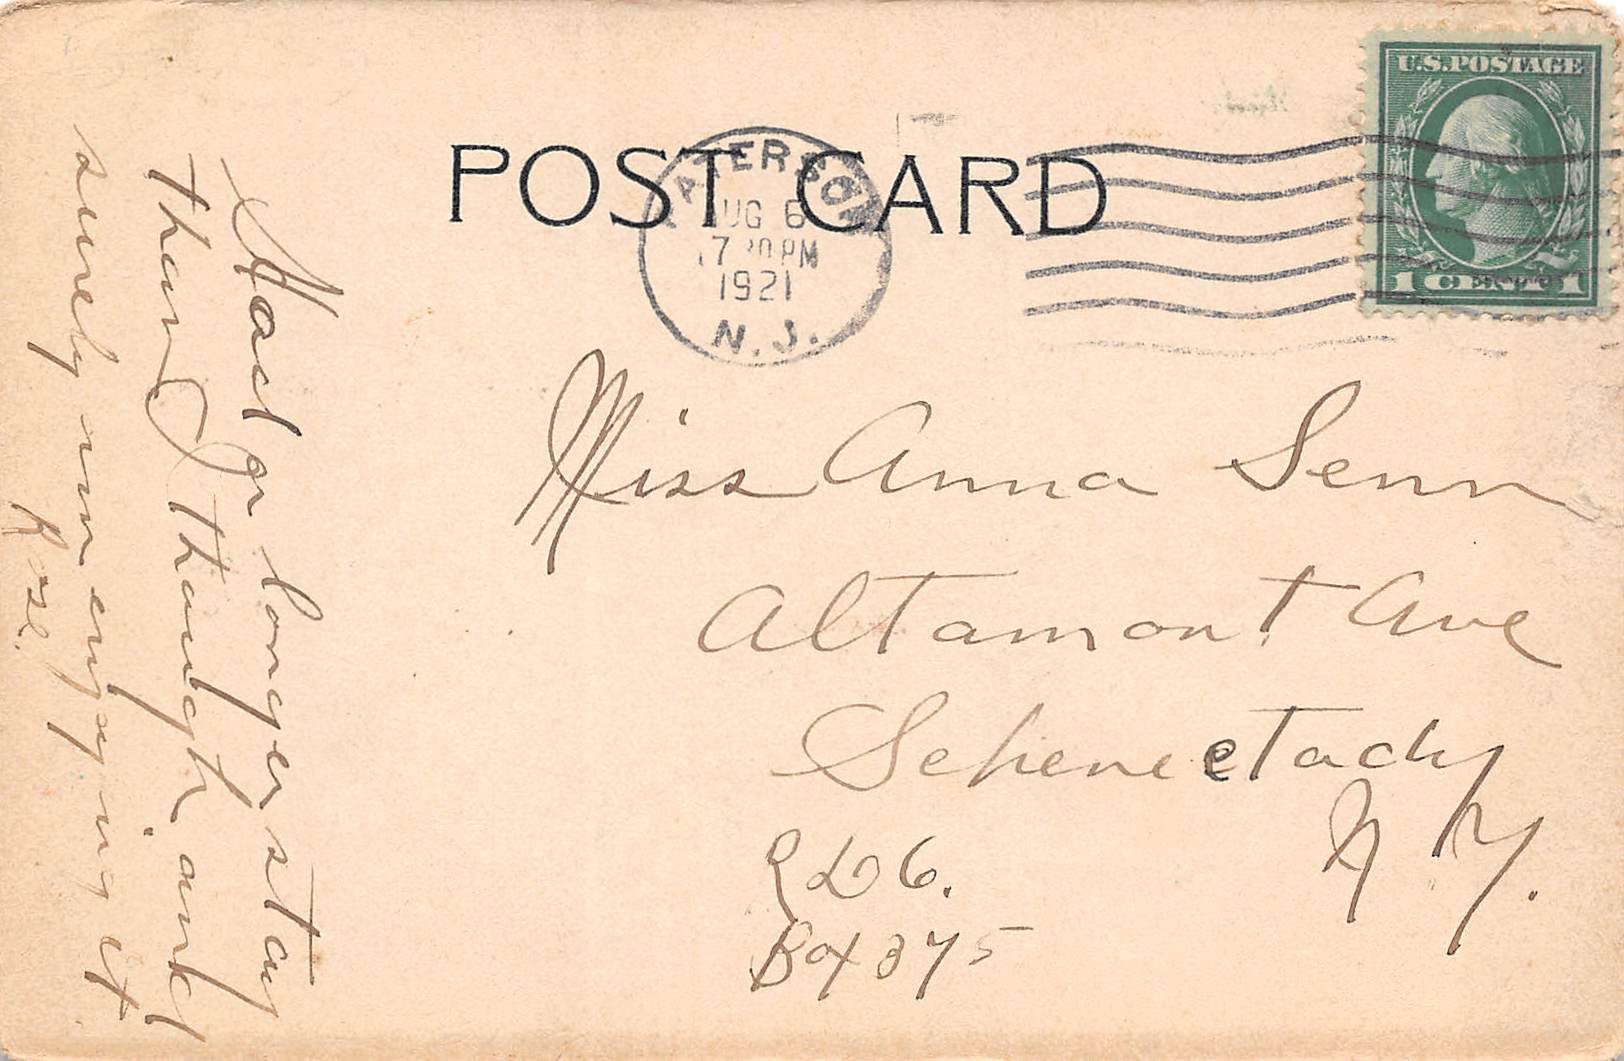 POST CARD
PATERSON
AUG 6
7 30 PM
1921
N. J.
U.S.POSTAGE
1 CENT 1
Miss Anna Senn
Altamont Ave
Schenectady
N. Y.
R D 6.
Box 375
Had a longer stay
than I thought, and
surely am enjoying it
Rose.